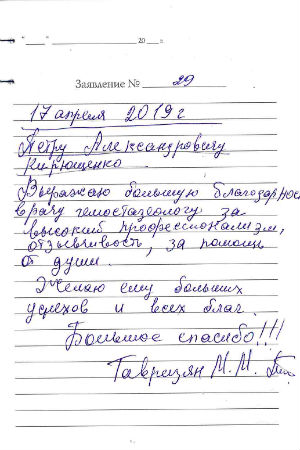 "____" ____________ 20 ___ г.
Заявление № 29
17 апреля 2019 г
Петру Александровичу
Кирющенко.
Выражаю большую благодарнос
врачу гемостазеологу за
высокий профессионализм,
отзывчивость, за помощь
от души.
Желаю ему больших
успехов и всех благ.
Большое спасибо!!!
Тавризян М. М.